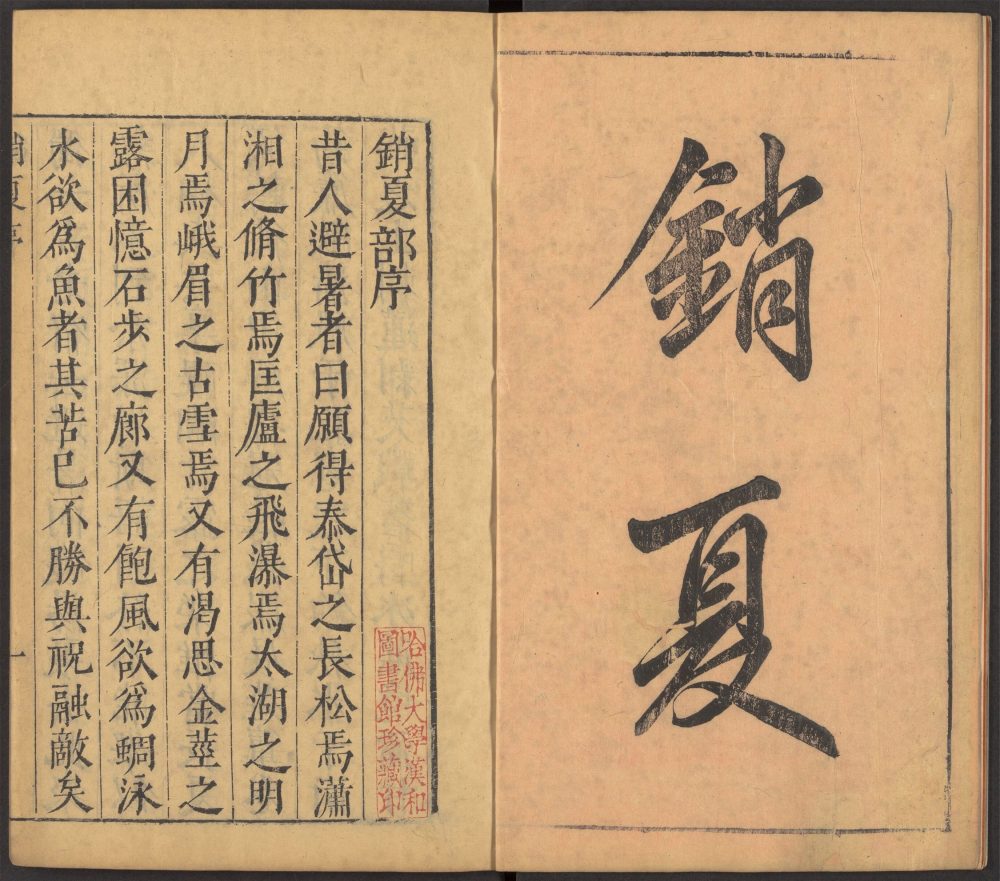 銷夏
銷夏部序
昔人避暑者曰願得泰岱之長松焉瀟
湘之脩竹焉匡廬之飛瀑焉太湖之明
月焉峨眉之古雪焉又有渴思金莖之
露困憶石步之廊又有飽風欲爲蜩泳
水欲爲魚者其苦已不勝與祝融敵矣
銷夏序
一
哈佛大學漢和
圖書館珍藏印